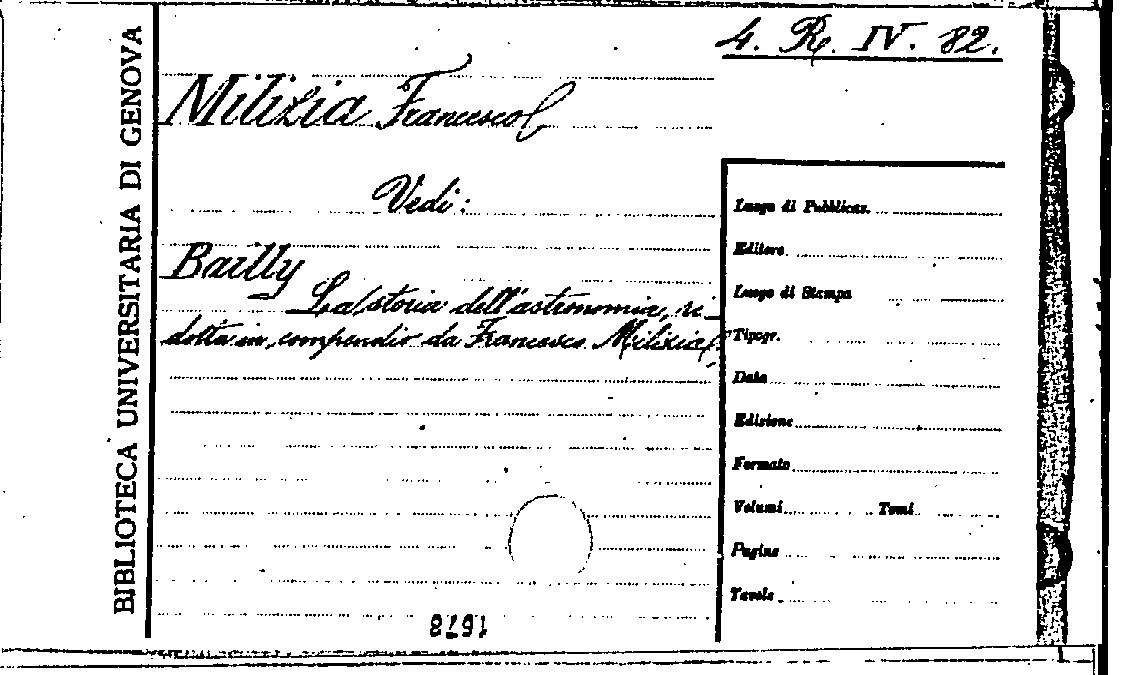 BIBLIOTECA UNIVERSITARIA DI GENOVA
4. R. IV. 82.
Milizia Francesco
Vedi:
Bailly
La storia dell'astronomia, ri-
dotta in compendio da Francesco Milizia
Luogo di Pubblicaz.
Editore
Luogo di Stampa
Tipogr.
Data
Edizione
Formato
Volumi Tomi
Pagine
Tavole
1678